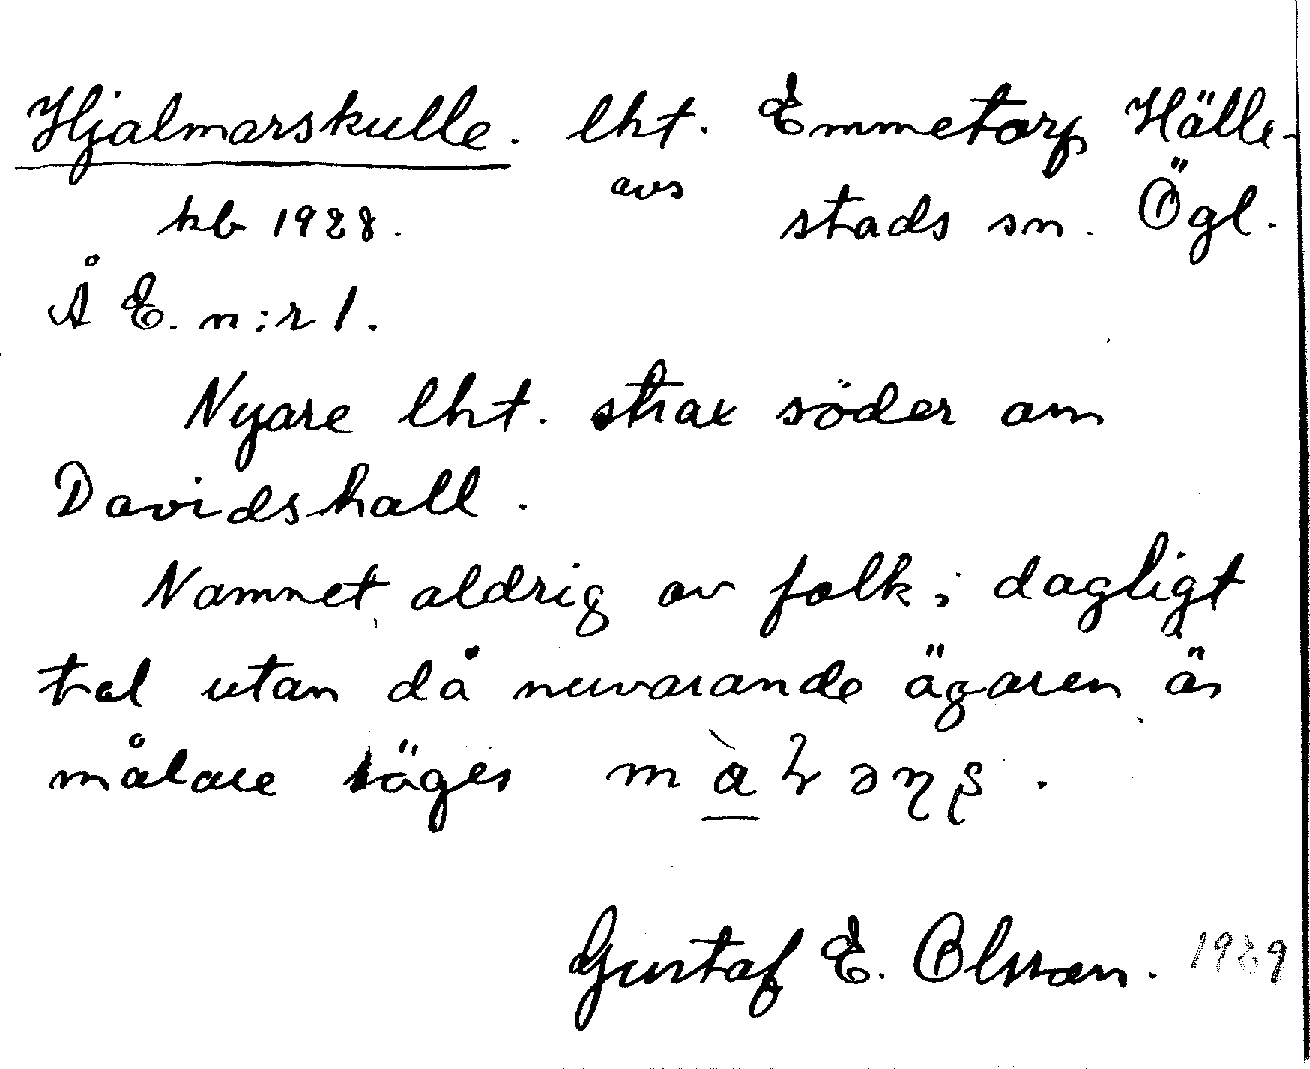 Hjalmarskulle. lht. Emmetorp Hälle-
kb 1928. avs stads sn. Ögl.
Å E. n:r 1.
Nyare lht. strax söder om
Davidshall.
Namnet aldrig av folk i dagligt
tal utan då nuvarande ägaren är
målare säges
Gustaf E. Olsson. 1929